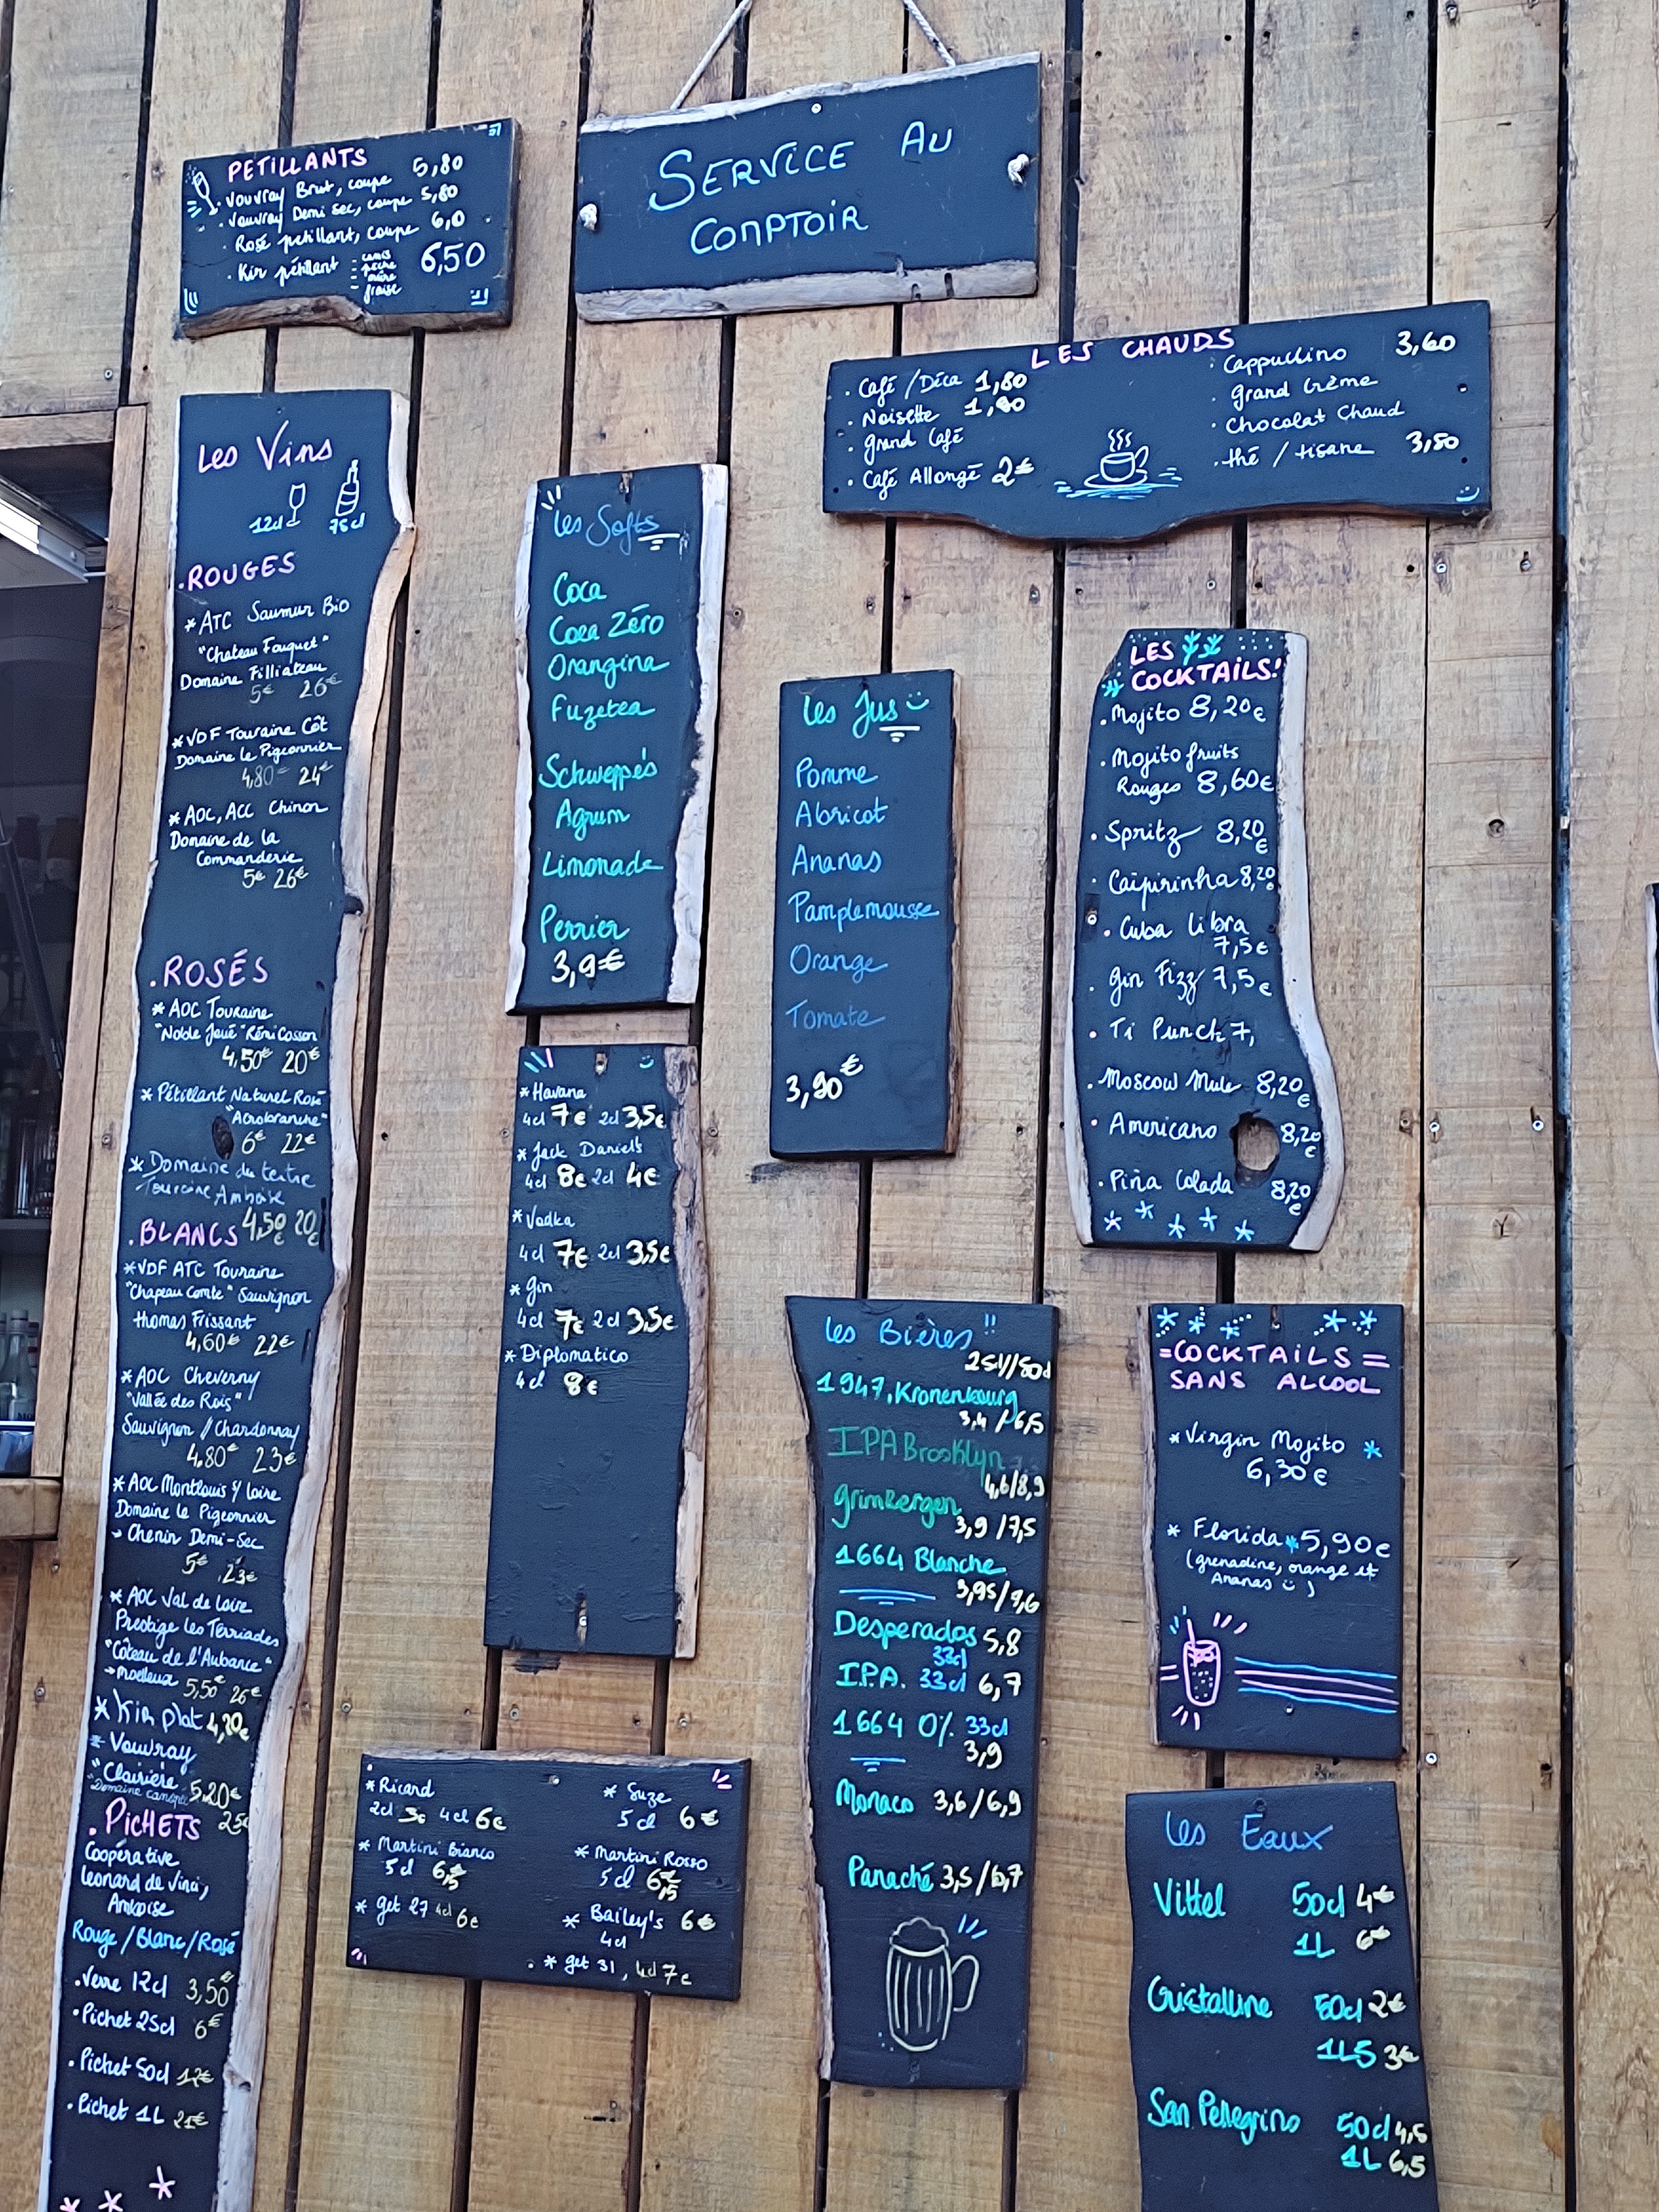 PETILLANTS
. Vouvray Brut, coupe 5,80
. Vouvray Demi sec, coupe 5,80
. Rosé petillant, coupe 6,0
. Kir pétillant - cassis 6,50
- pèche
- mûre
- fraise
SERVICE AU
COMPTOIR
LES CHAUDS
. Café / Déca 1,80
. Noisette 1,90
. Grand Café
. Café Allongé 2€
. Cappuccino 3,60
. Grand Crème
. Chocolat Chaud
. thé / tisane 3,50
Les Vins
12cl 75cl
. ROUGES
* ATC Saumur Bio
"Chateau Fouquet"
Domaine Filliateau
5€ 26€
* VDF Touraine Côt
Domaine le Pigeonnier
4,80 24€
* AOC, ACC Chinon
Domaine de la
Commanderie
5€ 26€
. ROSÉS
* AOC Touraine
"Noble Joué" Rémi Cosson
4,50€ 20€
* Pétillant Naturel Rosé
"Acrobranche"
6€ 22€
* Domaine du tertre
Touraine Amboise
4,50€ 20€
. BLANCS
* VDF ATC Touraine
"Chapeau Comte" Sauvignon
Thomas Frissant
4,60€ 22€
* AOC Cheverny
"Vallée des Rois"
Sauvignon // Chardonnay
4,80€ 23€
* AOC Montlouis s/ Loire
Domaine le Pigeonnier
→ Chenin Demi-Sec
5€ 23€
* AOC Val de Loire
Prestige les Terriades
"Côteau de l'Aubance"
→ Moelleux 5,50€ 26€
* Kir plat 4,20€
* Vouvray
"Clairière
Domaine 5,20€
25€
. PICHETS
Coopérative
Leonard de Vinci,
Amboise
Rouge / Blanc / Rosé
. Verre 12cl 3,50€
. Pichet 25cl 6€
. Pichet 50cl 12€
. Pichet 1L 21€
Les Softs
Coca
Coca Zéro
Orangina
Fuzetea
Schweppès
Agrum
Limonade
Perrier
3,9€
* Havana
4cl 7€ 2cl 3,5€
* Jack Daniel's
4cl 8€ 2cl 4€
* Vodka
4cl 7€ 2cl 3,5€
* Gin
4cl 7€ 2cl 3,5€
* Diplomatico
4cl 8€
* Ricard
2cl 3€ 4cl 6€
* Martini Bianco
5cl 6,5
* get 27 4cl 6€
* Suze
5cl 6€
* Martini Rosso
5cl 6,5
* Bailey's 6€
4cl
. * get 31, 4cl 7€
Les Jus
Pomme
Abricot
Ananas
Pamplemousse
Orange
Tomate
3,90€
LES
COCKTAILS!
. Mojito 8,20€
. Mojito fruits
Rouges 8,60€
. Spritz 8,20€
. Caïpirinha 8,20
. Cuba Libra
7,5€
. Gin Fizz 7,5€
. Ti Punch 7,
. Moscow Mule 8,20€
. Americano 8,20€
. Piña Colada 8,20€
Les Bières!!
25cl//50cl
1947, Kronenbourg
3,4 / 6,5
IPA Brooklyn
4,6/8,9
Grimbergen
3,9 / 7,5
1664 Blanche
3,95/7,6
Desperados 5,8
33cl
I.P.A. 33cl 6,7
1664 0% 33cl
3,9
Monaco 3,6/6,9
Panaché 3,5/6,7
=COCKTAILS=
SANS ALCOOL
* Virgin Mojito *
6,30€
* Florida * 5,90€
(grenadine, orange et
Ananas )
Les Eaux
Vittel 50cl 4€
1L 6€
Cristalline 50cl 2€
1L5 3€
San Pellegrino 50cl 4,5
1L 6,5